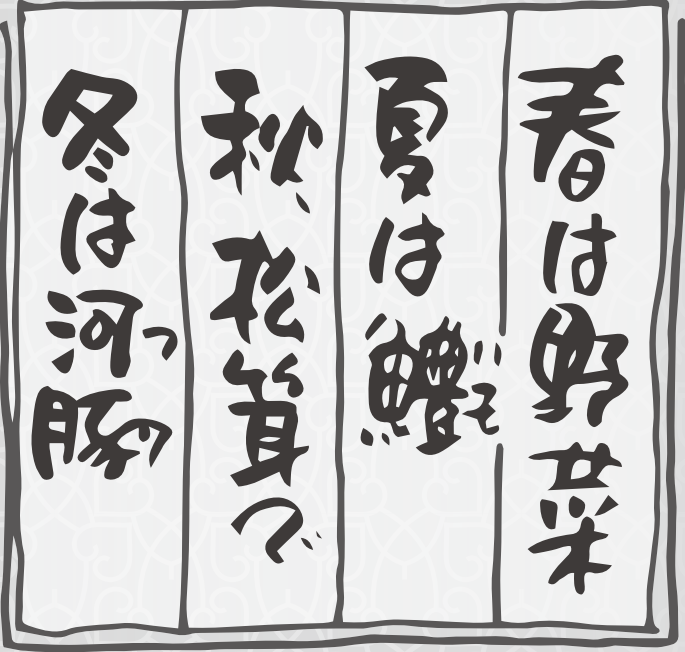 春は野菜
夏は鱧
秋、松茸で
冬は河豚